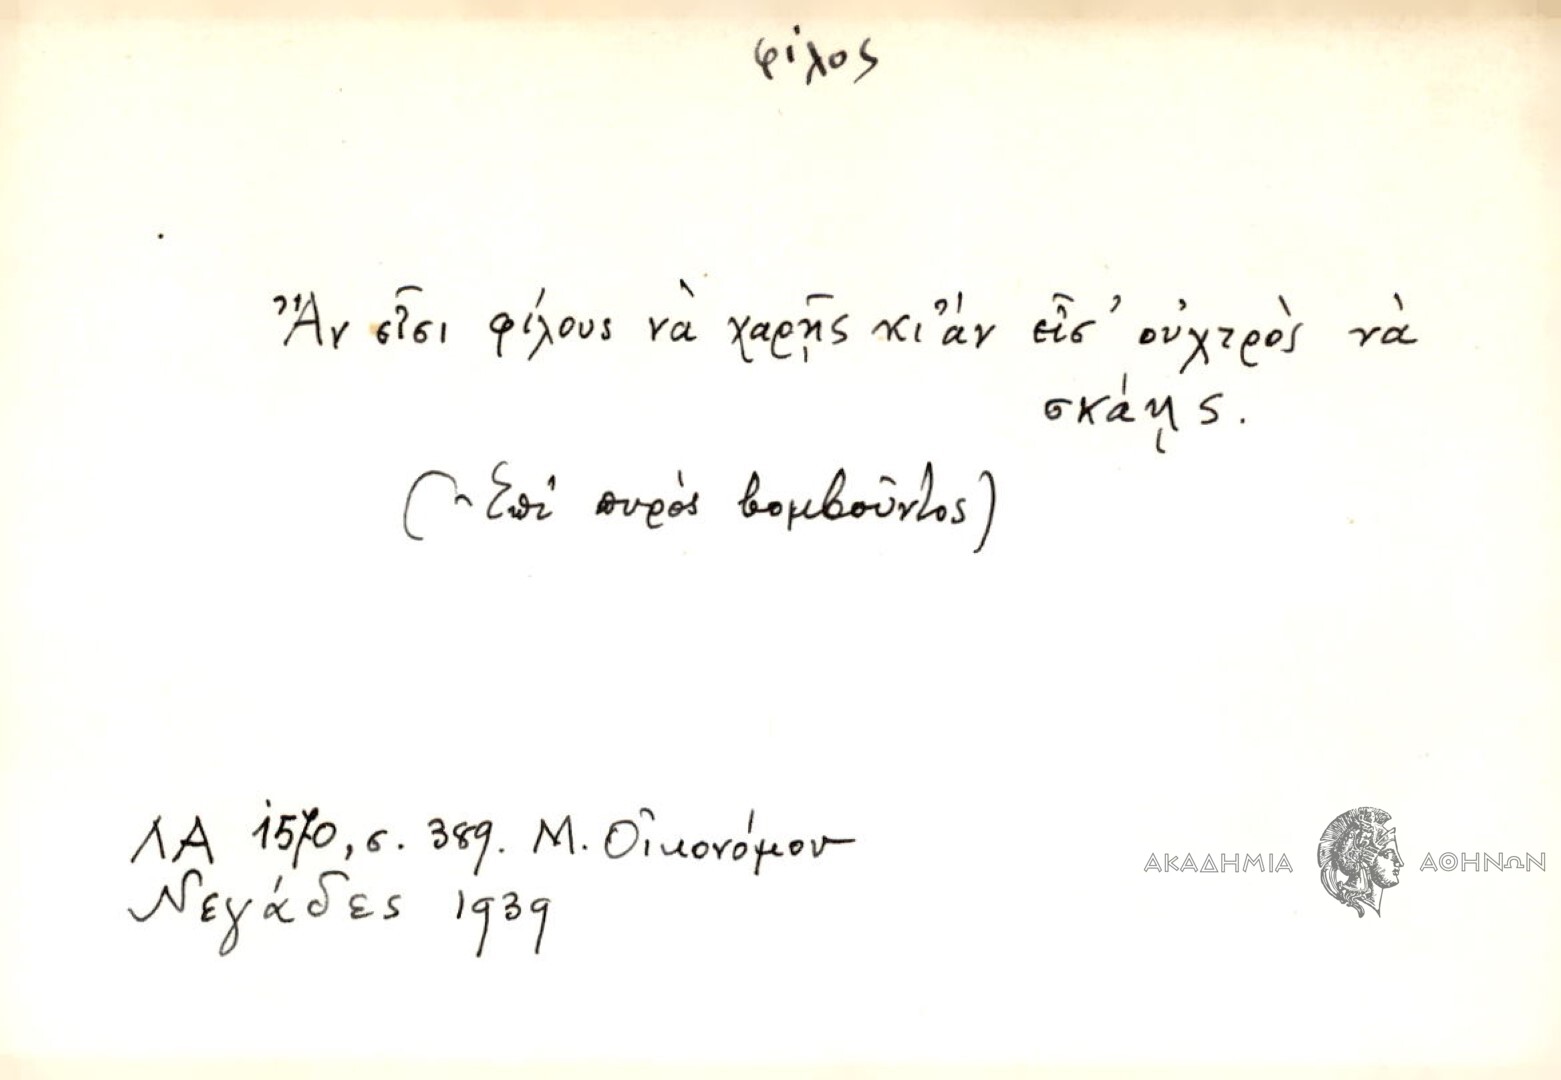 φίλος
Ἂν εἶσι φίλους νὰ χαρῇς κι ἂν εἶσ' οὐχτρὸς νὰ
σκάῃς.
(Ἐπὶ πυρὸς βομβοῦντος)
ΛΑ 1570, σ. 389. Μ. Οἰκονόμου
Νεγάδες 1939
ΑΚΑΔΗΜΙΑ ΑΘΗΝΩΝ